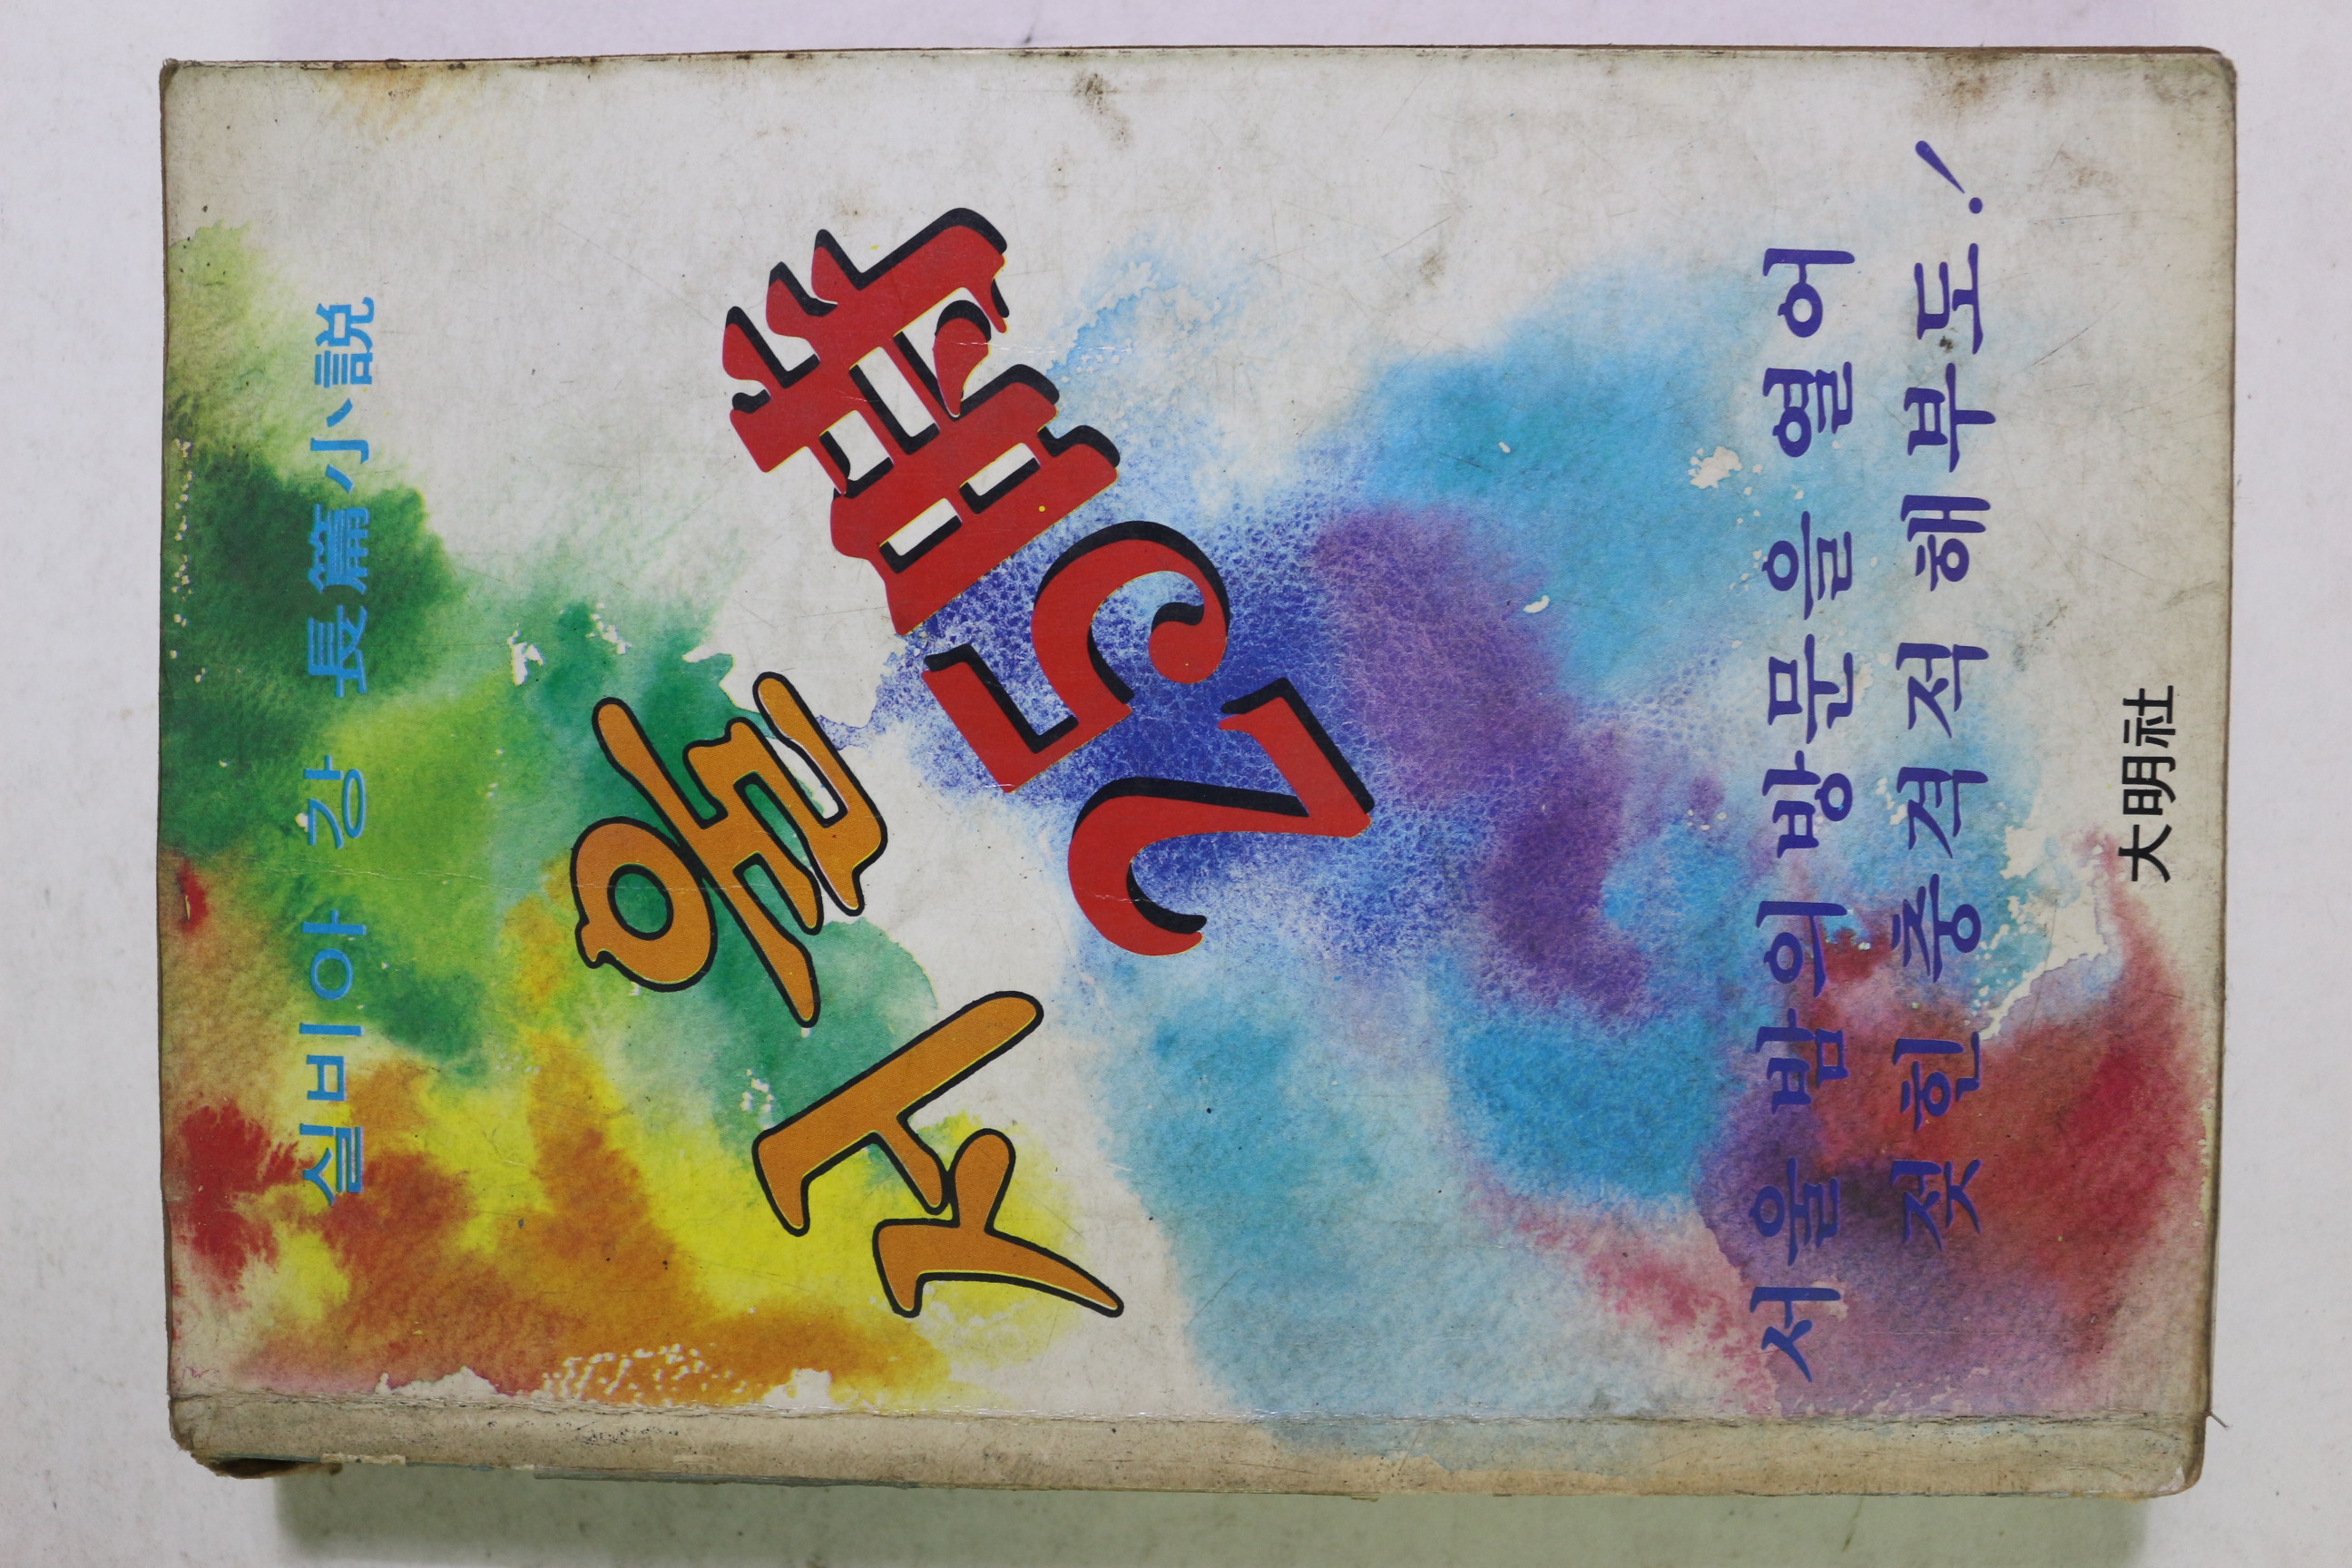 실비아 강 長篇小說
서울
25時
서울 밤의 방문을 열어
젖힌 충격적 해부도!
大明社